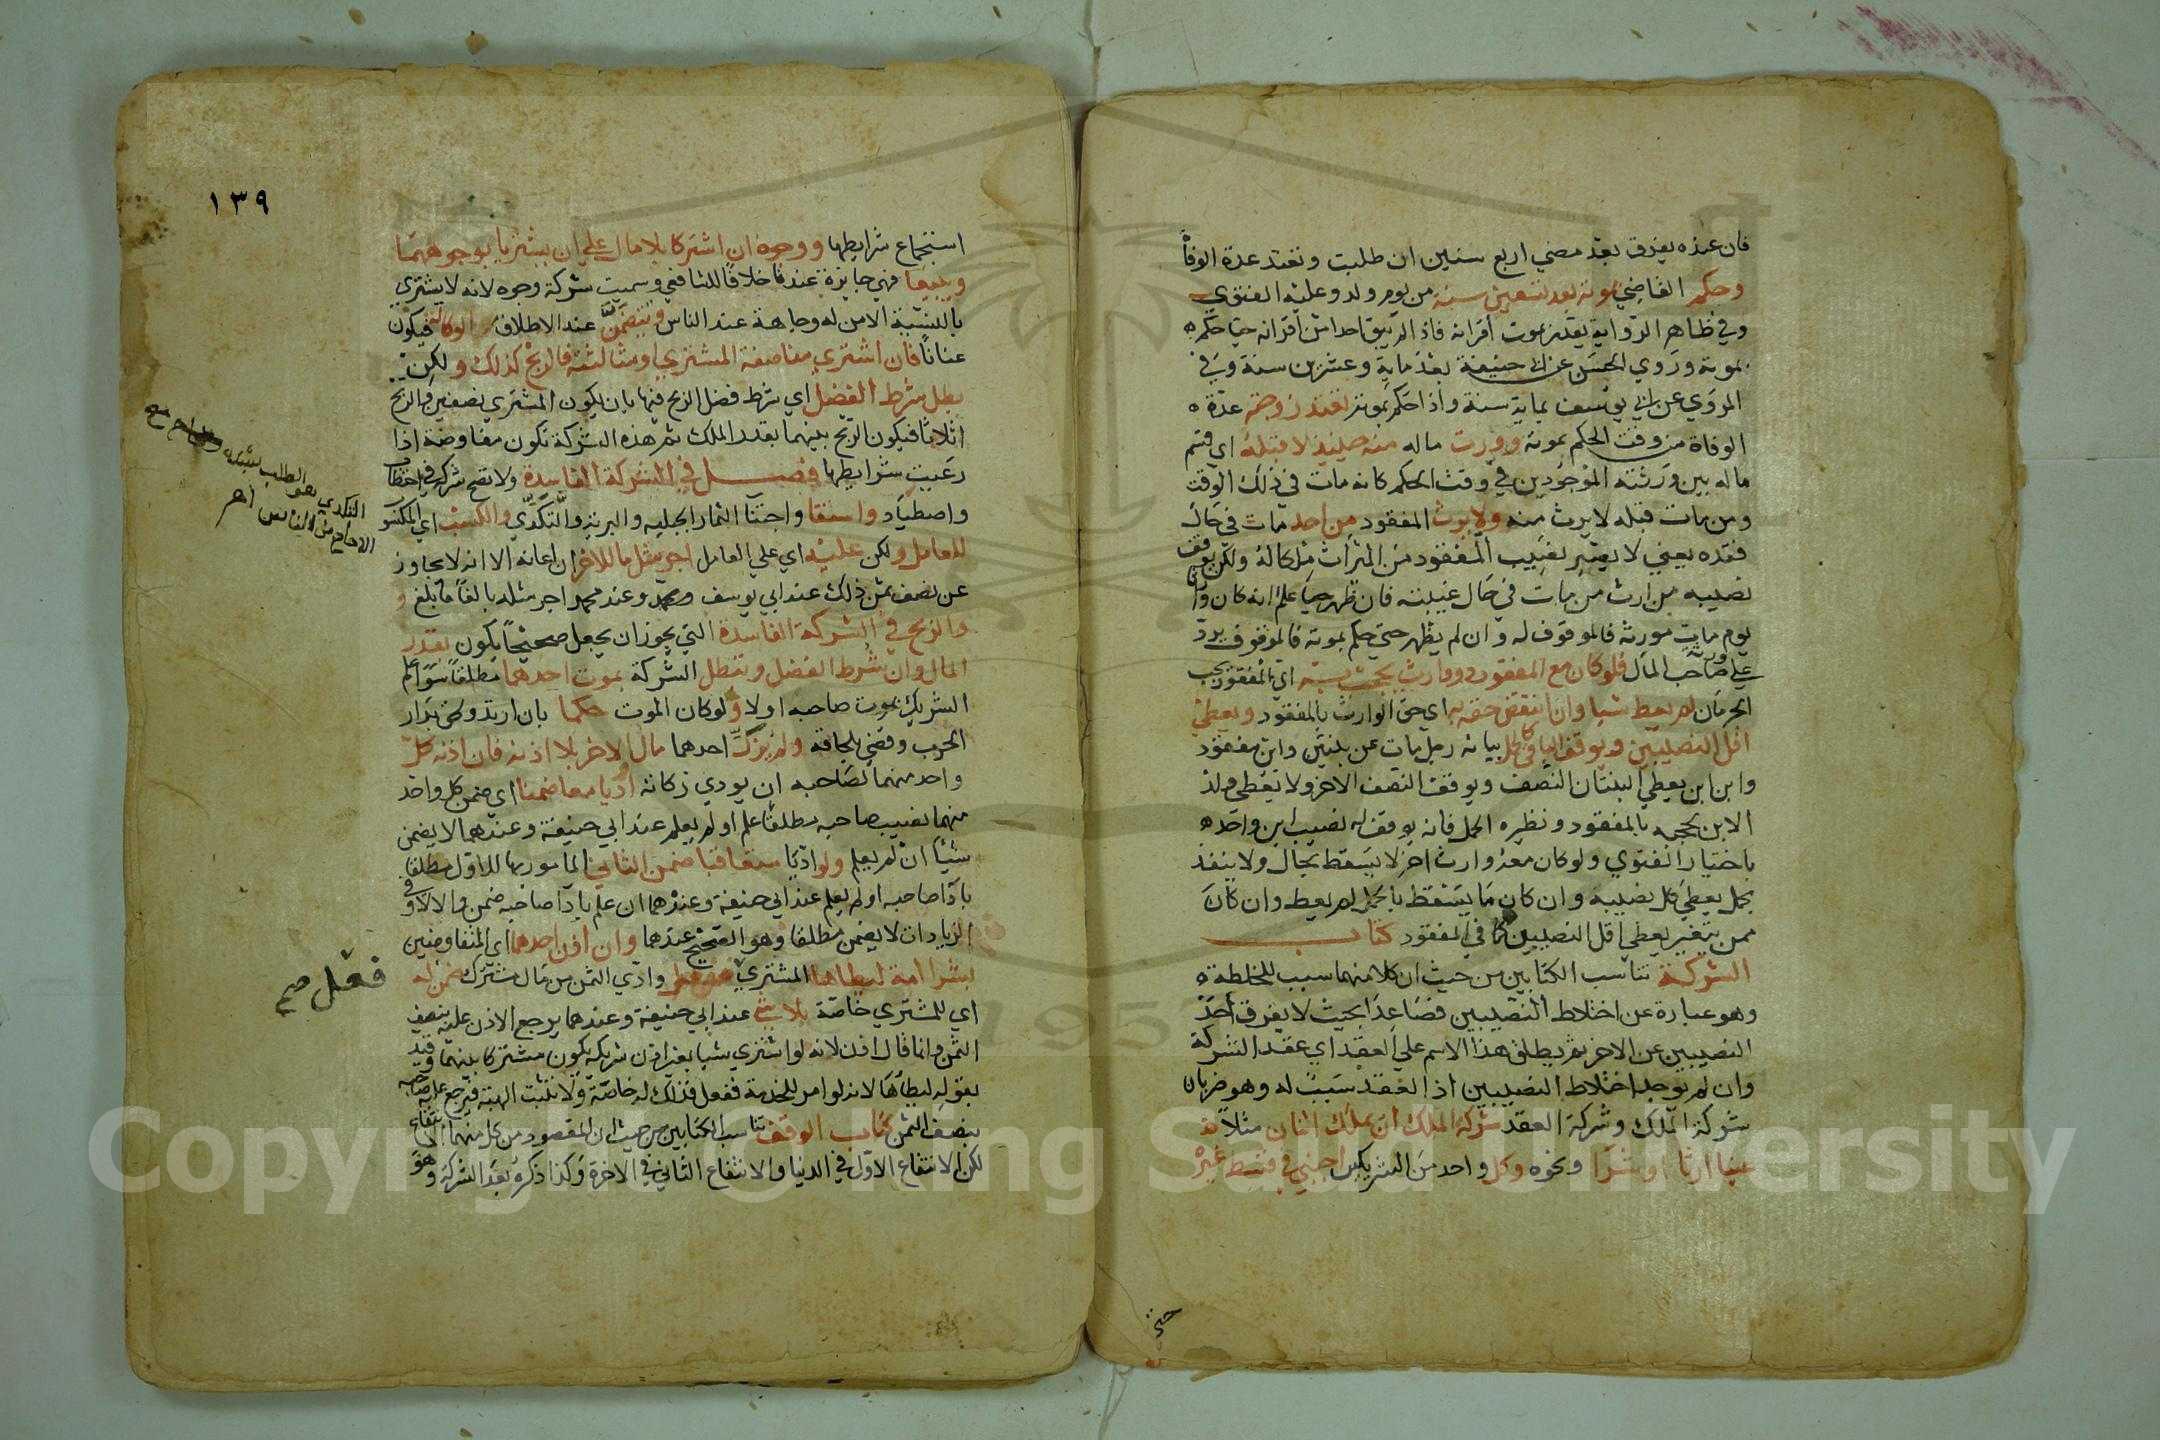 فان عنده يفرق بعد مضي اربع سنين ان طلبت وتعتد عدة الوفاة
وحكم القاضي بموته بعد تسعين سنة من يوم ولد وعليه الفتوي
وفي ظاهر الرواية يقدر بموت أقرانه فاذا لم يبق احد من أقرانه حيا حكم
بموته وروي الحسن عن ابي حنيفة بعد ماية وعشرين سنة وفي
المروي عن ابي يوسف بماية سنة واذا حكم بموته تعتد زوجته عدة
الوفاة من وقت الحكم بموته وورث ماله منه حينيذ لا قبله اي قسم
ماله بين ورثته الموجودين في وقت الحكم كانه مات في ذلك الوقت
ومن مات قبله لا يرث منه ولا يرث المفقود من احد مات في حال
فقده يعني لا يعتبر نصيب المفقود من الميراث ملكا له ولكن يوقف
نصيبه من ارث من مات في حال غيبته فان ظهر حيا علم انه كان وارثا
يوم مات مورثه فالموقوف له وان لم يظهر حتي حكم بموته فالموقوف يرد
علي ورثة صاحب المال فلو كان مع المفقود وارث يحجب به اي المفقود حجب
الحرمان لم يعط شيا وان انتقص حقه به اي حق الوارث بالمفقود ويعطي
اقل النصيبين ويوقف الباقي بيانه رجل مات عن بنتين وابن مفقود
وابن ابن يعطي البنتان النصف ويوقف النصف الاخر ولا يعطي ولد
الابن لحجبه بالمفقود ونظيره الحمل فانه يوقف له نصيب ابن واحد
باختيار الفتوي ولو كان معه وارث اخر لا يسقط بحال ولا يتغير
بحمل يعطي كل نصيبه وان كان مما يسقط بالحمل لم يعط وان كان
ممن يتغير يعطي اقل النصيبين كما في المفقود كتاب
الشركة تناسب الكتابين من حيث ان كلا منهما سبب للخلطة
وهو عبارة عن اختلاط النصيبين فصاعدا بحيث لا يفرق أحد
النصيبين عن الاخر ثم يطلق هذا الاسم علي العقد اي عقد الشركة
وان لم يوجد اختلاط النصيبين اذ العقد سبب له وهو ضربان
شركة الملك وشركة العقد شركة الملك ان يملك اثنان مثلا
عينا ارثا او شرا ونحوه وكل واحد من الشريكين اجنبي في قسط غيره
حتى
١٣٩
استجماع شرايطها ووجوه ان اشتركا بلا مال علي ان يشتريا بوجوههما
ويبيعا فهي جايزة عندنا خلافا للشافعي وسميت شركة وجوه لانه لا يشتري
بالنسية الا من له وجاهة عند الناس وتتضمن عند الاطلاق الوكالة فيكون
عنانا فان اشتري مناصفة المشتري او مثالثة فالربح كذلك ولكن
بطل شرط الفضل اي شرط فضل الربح فيها بان يكون المشتري نصفين والربح
اثلاثا فيكون الربح بينهما بقدر الملك ثم هذه الشركة تكون مفاوضة اذا
رعيت شرايطها فصل في الشركة الفاسدة ولا تصح شركة في احتطاب
واصطياد واستقا واجتنا الثمار الجبلية والبرية والتكدي والكسب اي المكسوب
للعامل ولكن عليه اي علي العامل اجر مثل ما للاخر ان اعانه الا انه لا يجاوز
عن نصف ثمن ذلك عند ابي يوسف وعند محمد اجر مثله بالغا ما بلغ
والربح في الشركة الفاسدة التي يجوز ان يجعل صحيحا يكون بقدر
المال وان شرط الفضل وتبطل الشركة بموت احدهما مطلقا سوا علم
الشريك بموت صاحبه او لا ولو كان الموت حكما بان ارتد ولحق بدار
الحرب وقضي بلحاقه ولم يزك احدهما مال الاخر بلا اذنه فان اذن كل
واحد منهما لصاحبه ان يودي زكاته واديا معا ضمنا اي ضمن كل واحد
منهما نصيب صاحبه مطلقا علم او لم يعلم عند ابي حنيفة وعندهما لا يضمن
شيا ان لم يعلم ولو اديا متعاقبا ضمن الثاني المامور بها للاول مطلقا
بادا صاحبه او لم يعلم عند ابي حنيفة وعندهما ان علم بادا صاحبه ضمن والا لا وفي
الزيادات لا يضمن مطلقا وهو الصحيح عندهما وان اذن احدهما اي المتفاوضين
بشرا امة ليطاها المشتري وادي الثمن من مال مشترك فهي له
اي للمشتري خاصة بلا شي عند ابي حنيفة وعندهما يرجع الاذن عليه بنصف
الثمن وانما قال اذن لانه لو اشتري شيا بغير اذن شريكه يكون مشتركا بينهما وقيد
بقوله ليطأها لانه لو امر للخدمة ففعل فذلك له خاصة ولا تثبت الهبة فيرجع عليه صاحبه
بنصف الثمن كتاب الوقف تناسب الكتابين من حيث ان المقصود من كل منهما الانتفاع
لكن الانتفاع الاول في الدنيا والانتفاع الثاني في الاخرة وكذا ذكره بعد الشركة وهو
التكدي هو الطلب
الالحاح من الناس اهـ
فعل صح
Copyright © King Saud University
1957